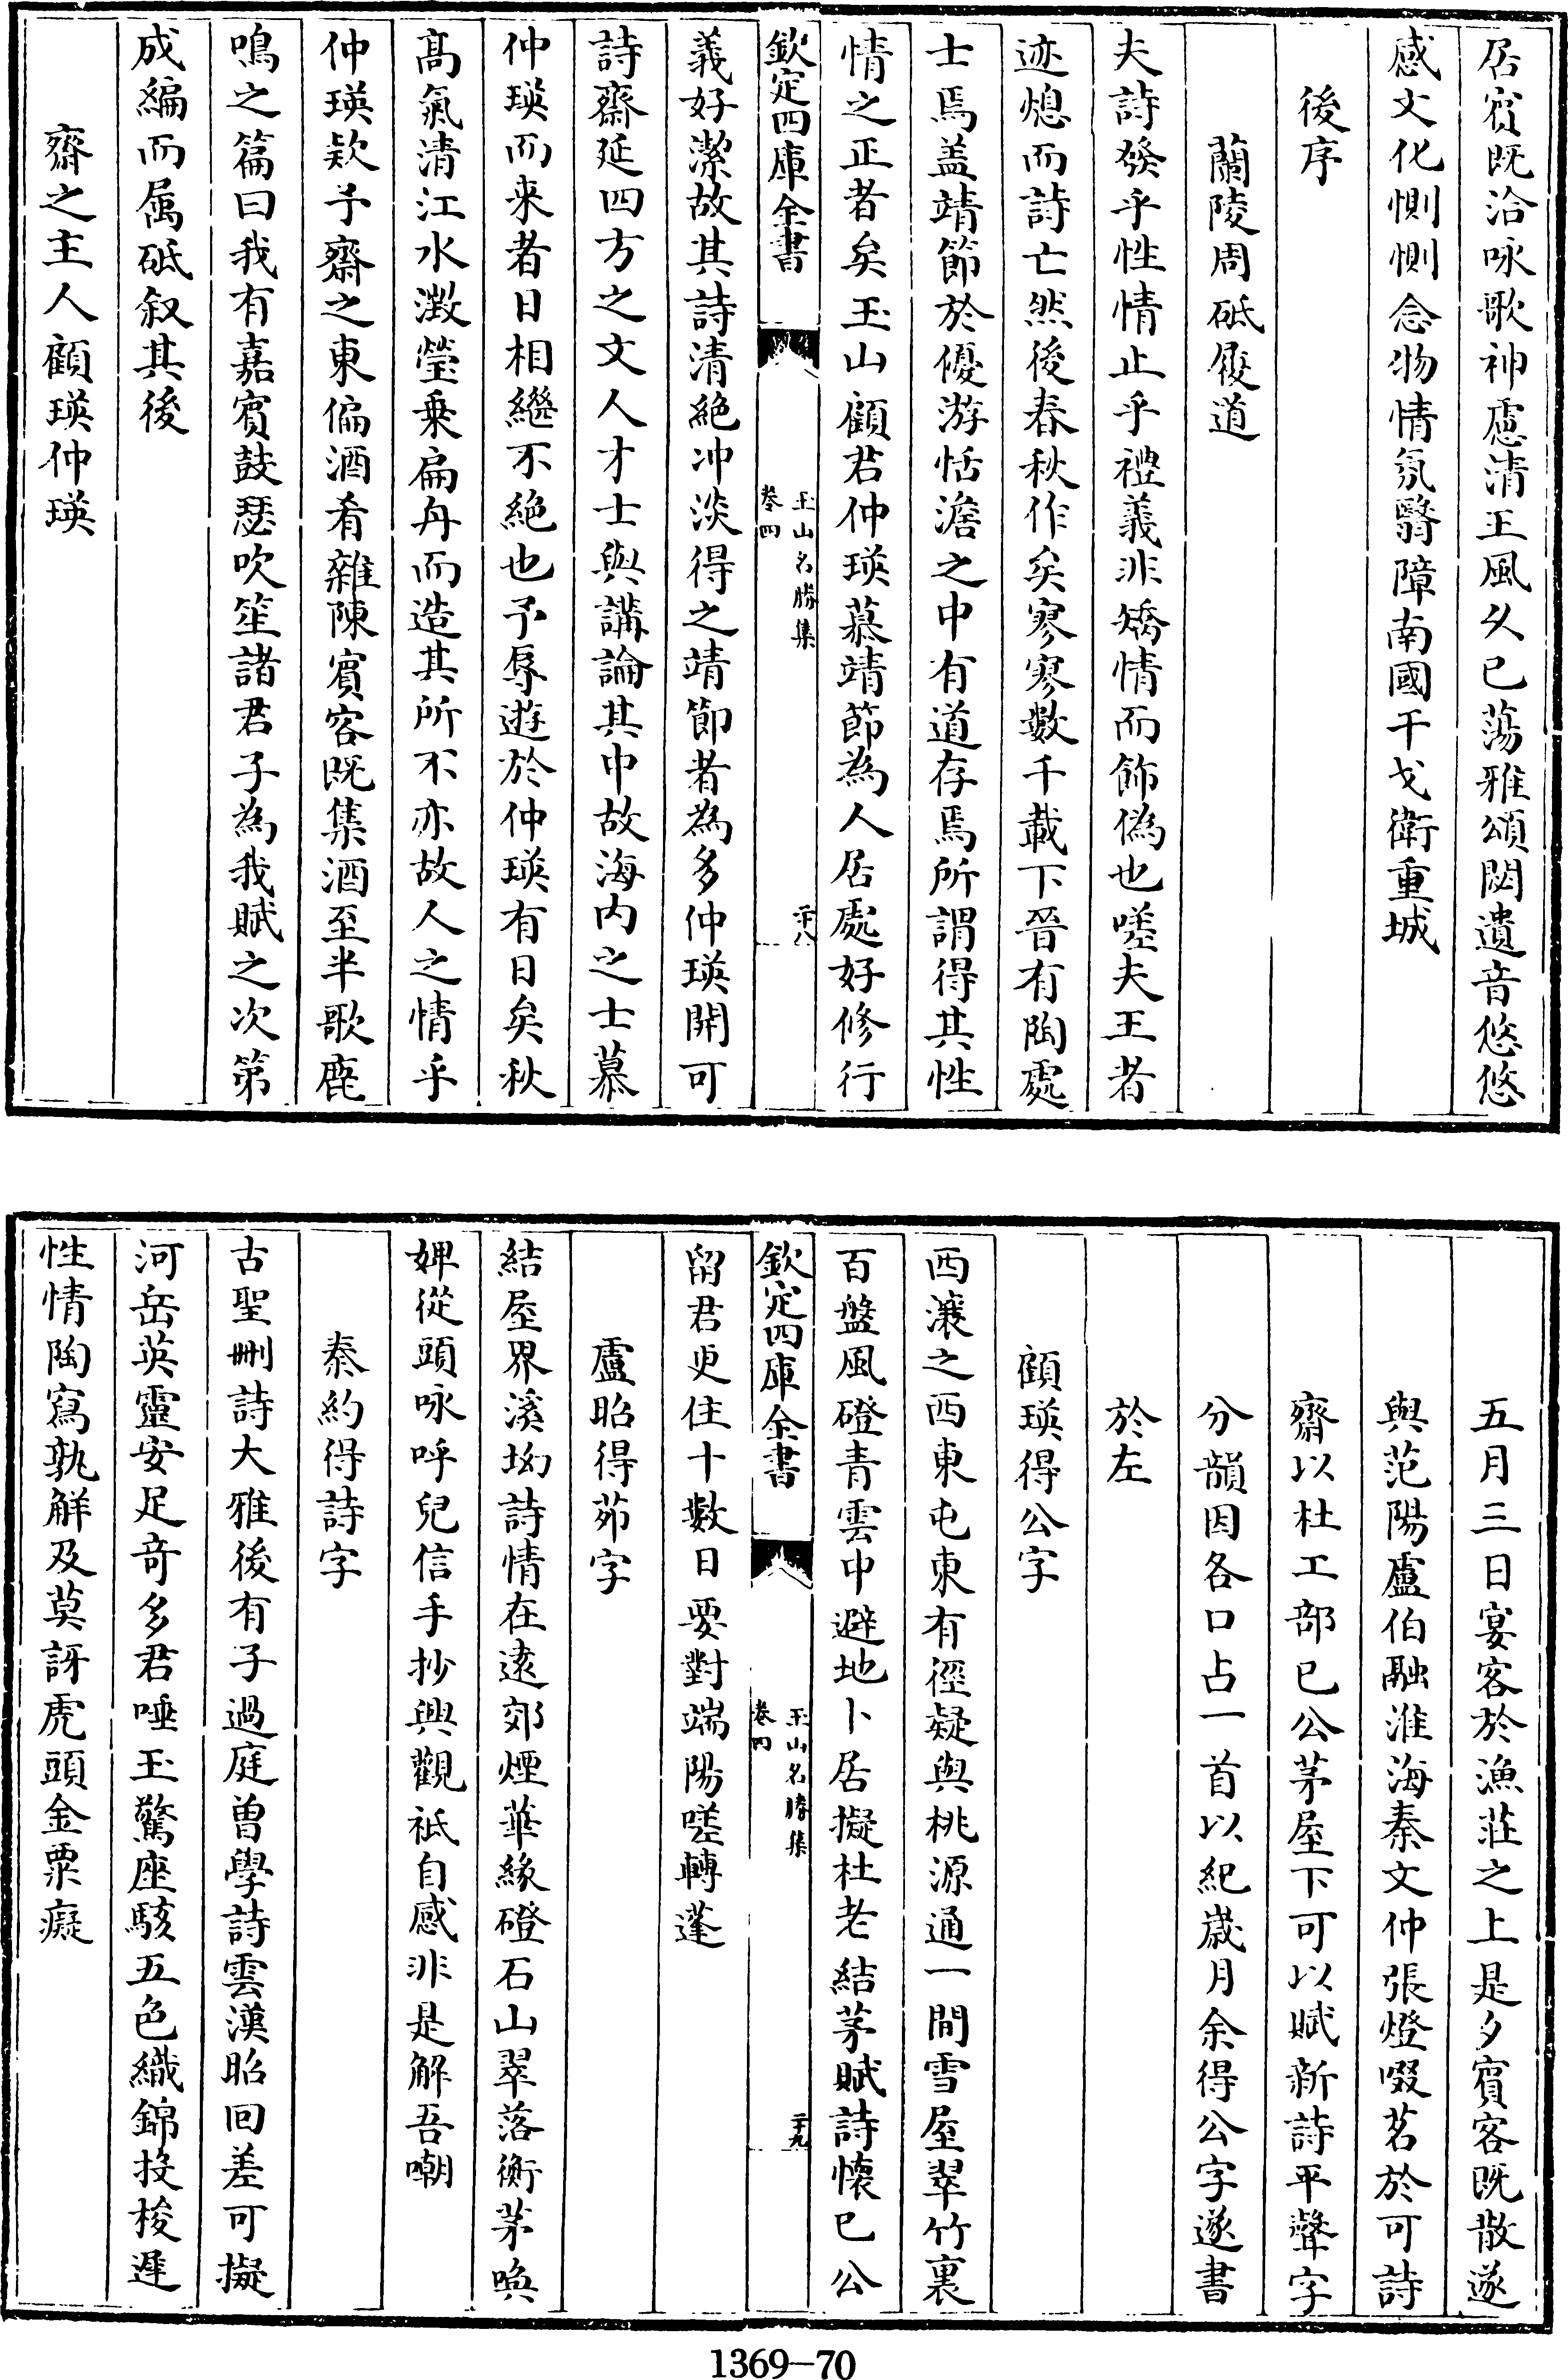 居賔既洽咏歌神慮清王風久已蕩雅頌閟遺音悠悠
感文化惻惻念物情氛翳障南國干戈衛重城
後序
蘭陵周砥履道
夫詩發乎性情止乎禮義非矯情而飾偽也嗟夫王者
迹熄而詩亡然後春秋作矣寥寥數千載下晉有陶處
士焉盖靖節於優游恬澹之中有道存焉所謂得其性
情之正者矣玉山顧君仲瑛慕靖節為人居處好修行
欽定四庫全書
玉山名勝集
卷四
二十八
義好潔故其詩清絶冲淡得之靖節者為多仲瑛開可
詩齋延四方之文人才士與講論其中故海内之士慕
仲瑛而来者日相繼不絶也予辱遊於仲瑛有日矣秋
髙氣清江水澂瑩乗扁舟而造其所不亦故人之情乎
仲瑛欵予齋之東偏酒肴雜陳賔客既集酒至半歌鹿
鳴之篇曰我有嘉賔鼓瑟吹笙諸君子為我賦之次第
成編而属砥叙其後
齋之主人顧瑛仲瑛
五月三日宴客於漁莊之上是夕賔客既散遂
與范陽盧伯融淮海秦文仲張燈啜茗於可詩
齋以杜工部已公茅屋下可以賦新詩平聲字
分韻因各口占一首以紀嵗月余得公字遂書
於左
顧瑛得公字
西瀼之西東屯東有徑疑與桃源通一間雪屋翠竹裏
百盤風磴青雲中避地卜居擬杜老結茅賦詩懷已公
欽定四庫全書
玉山名勝集
卷四
二十九
留君更住十數日要對端陽嗟轉蓬
盧昭得茆字
結屋界溪坳詩情在逺郊煙華緣磴石山翠落衡茅喚
婢從頭咏呼兒信手抄興觀祗自感非是解吾嘲
秦約得詩字
古聖刪詩大雅後有子過庭曽學詩雲漢昭回差可擬
河岳英靈安足竒多君唾玉驚座駭五色織錦投梭遲
性情陶寫孰觧及莫訝虎頭金粟癡
1369—70